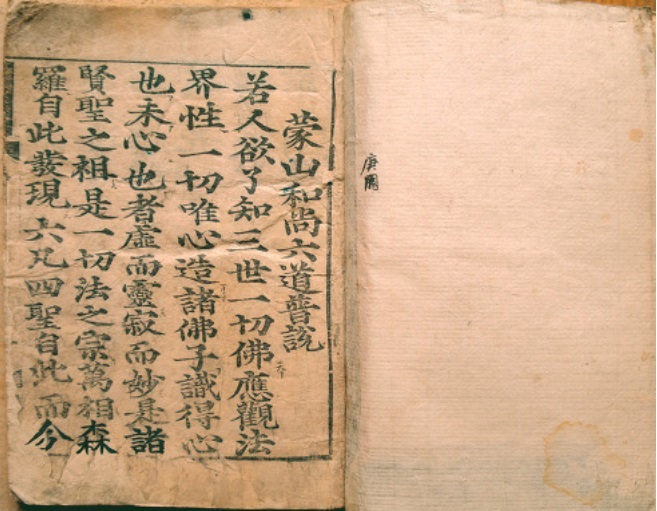 蒙山和尚六道普說
若人欲了知三世一切佛應觀法
界性一切唯心造諸佛子識得心
也未心也者虛而靈寂而妙是諸
賢聖之祖是一切法之宗萬相森
羅自此發現六凡四聖自此而今